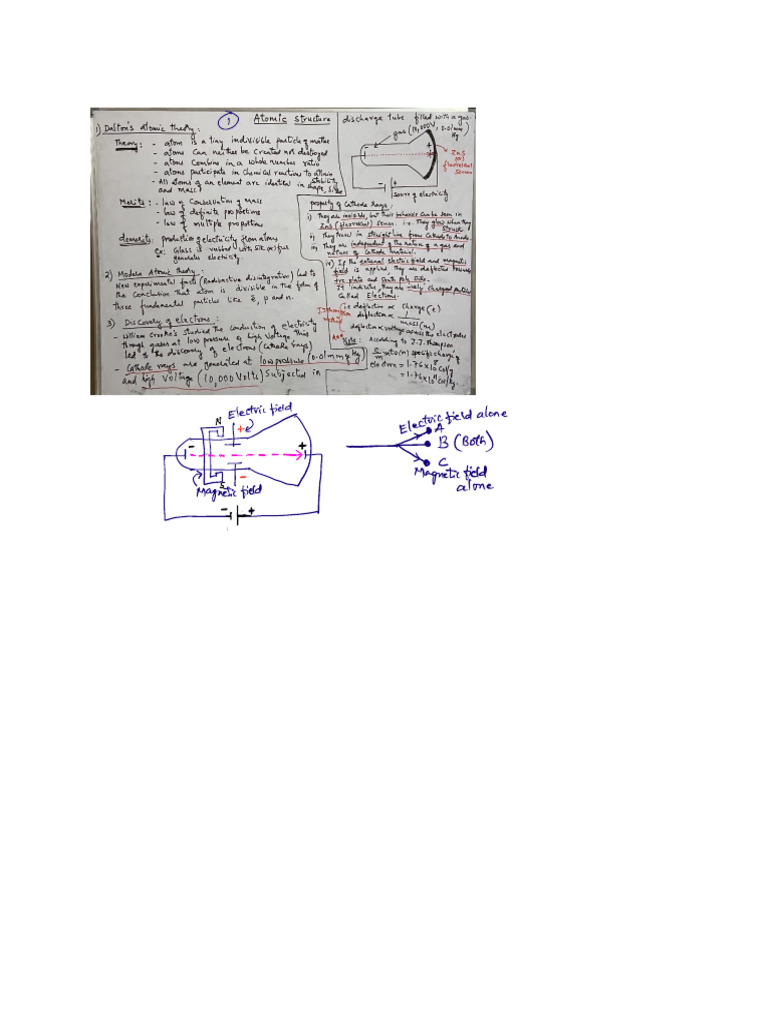 ① Atomic structure
1) Dalton's Atomic theory :
Theory : - atom is a tiny indivisible particle of matter
- atoms can neither be created nor destroyed
- atoms combine in a whole number ratio
- atoms participate in chemical reactions to attain stability
- All atoms of an element are identical in shape, size
and mass
Merits : - law of Conservation of mass
- law of definite proportions
- law of multiple proportions
demerits: production of electricity from atoms
Ex: Glass is rubbed with silk (or) fur
generates electricity
2) Modern Atomic theory :
New experimental facts (Radioactive disintegration) led to
the conclusion that atom is divisible in the form of
three fundamental particles like ē, p and n.
3) Discovery of electrons :
- William Crooke's studied the conduction of electricity
through gases at low pressure & high voltage. This
led to the discovery of electrons (Cathode rays)
- Cathode rays are generated at low pressure (0.01mm of Hg)
and high voltage (10,000 Volts) subjected in
discharge tube filled with a gas.
gas (10,000V, 0.01mm
Hg)
+
ZnS
(or)
fluorescent
screen
- +
source of electricity
property of Cathode Rays :
i) They are invisible, but their behavior can be seen in
ZnS (fluorescent) screen i.e. They glow when they
struck
ii) They travel in straight line from Cathode to Anode.
iii) They are independent of the nature of a gas and
nature of Cathode material.
iv) If the external electric field and magnetic
field is applied, they are deflected towards
+ve plate and south pole side.
It indicates, they are -vely charged particles
called Electrons.
i.e deflection ∝ charge (e)
deflection ∝ 1/mass (m)
deflection ∝ voltage across the electrodes
Note : According to J.J. Thompson
e/m ratio (n) specific charge of
electron = 1.76×10⁸ Col/g
= 1.76×10¹¹ Col/kg.
Electric field
N
+
-
+
-
S
Magnetic field
- +
Electric field alone
A
B (Both)
C
Magnetic field
alone